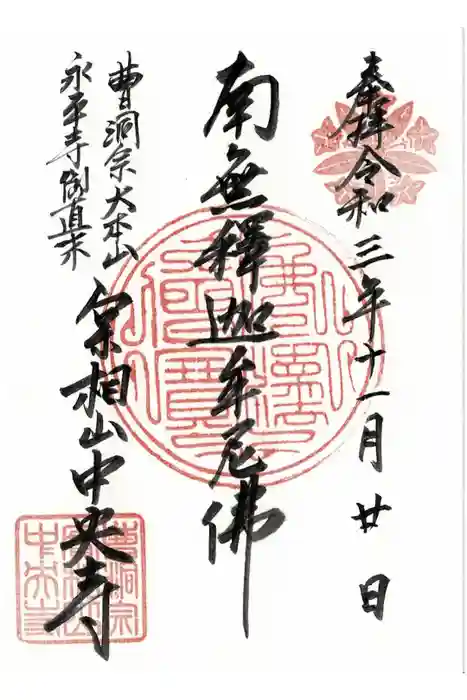 奉拝 令和三年十一月廿日
南無釋迦牟尼佛
曹洞宗大本山
永平寺御直末
實相山中央寺
佛法僧寶
曹洞宗
實相山
中央寺